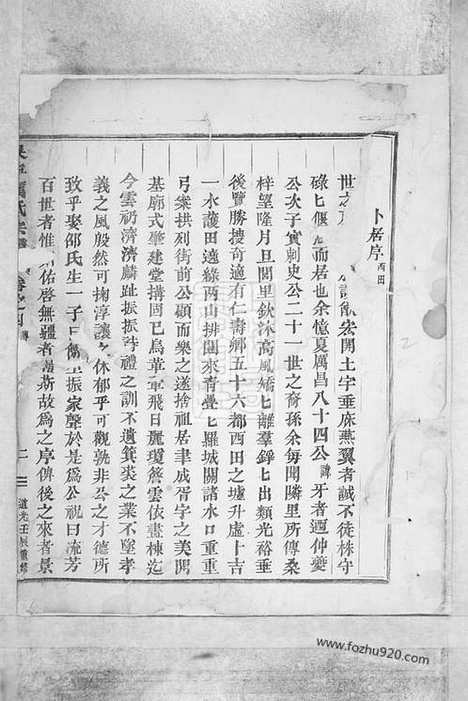 卜居序 西田
世之 宏開土宇垂庥燕翼者誠不徒株守
碌匕偃 而居也余憶夏厲昌八十四公諱牙者迺仲夔
公次子實刺史公二十一世之裔孫余每聞隣里所傳桑
梓望隆月旦閭里欽沐高風矯匕離羣錚匕出類光裕垂
後覽勝搜奇適有仁壽鄉五十六都西田之墟升虛卜吉
一水護田遠綠兩山排闥來青疊匕羅城關諸水口重重
弓案拱列街前公顧而樂之遂捨祖居聿成胥宇之美開
基廓式肇建堂搆固已鳥革翬飛日麗瓊簷雲依畫棟迄
今雲礽濟濟麟趾振振詩禮之訓不遺箕裘之業不墜孝
義之風殷然可掬淳讓 休郁乎可觀孰非公之才德所
致乎娶邵氏生一子曰 振家聲於是為公祝曰流芳
百世者惟 佑啓無疆者 斯故為之序俾後之來者景
氏宗譜 卷之
二 道光壬辰重修
www.fozhu920.com